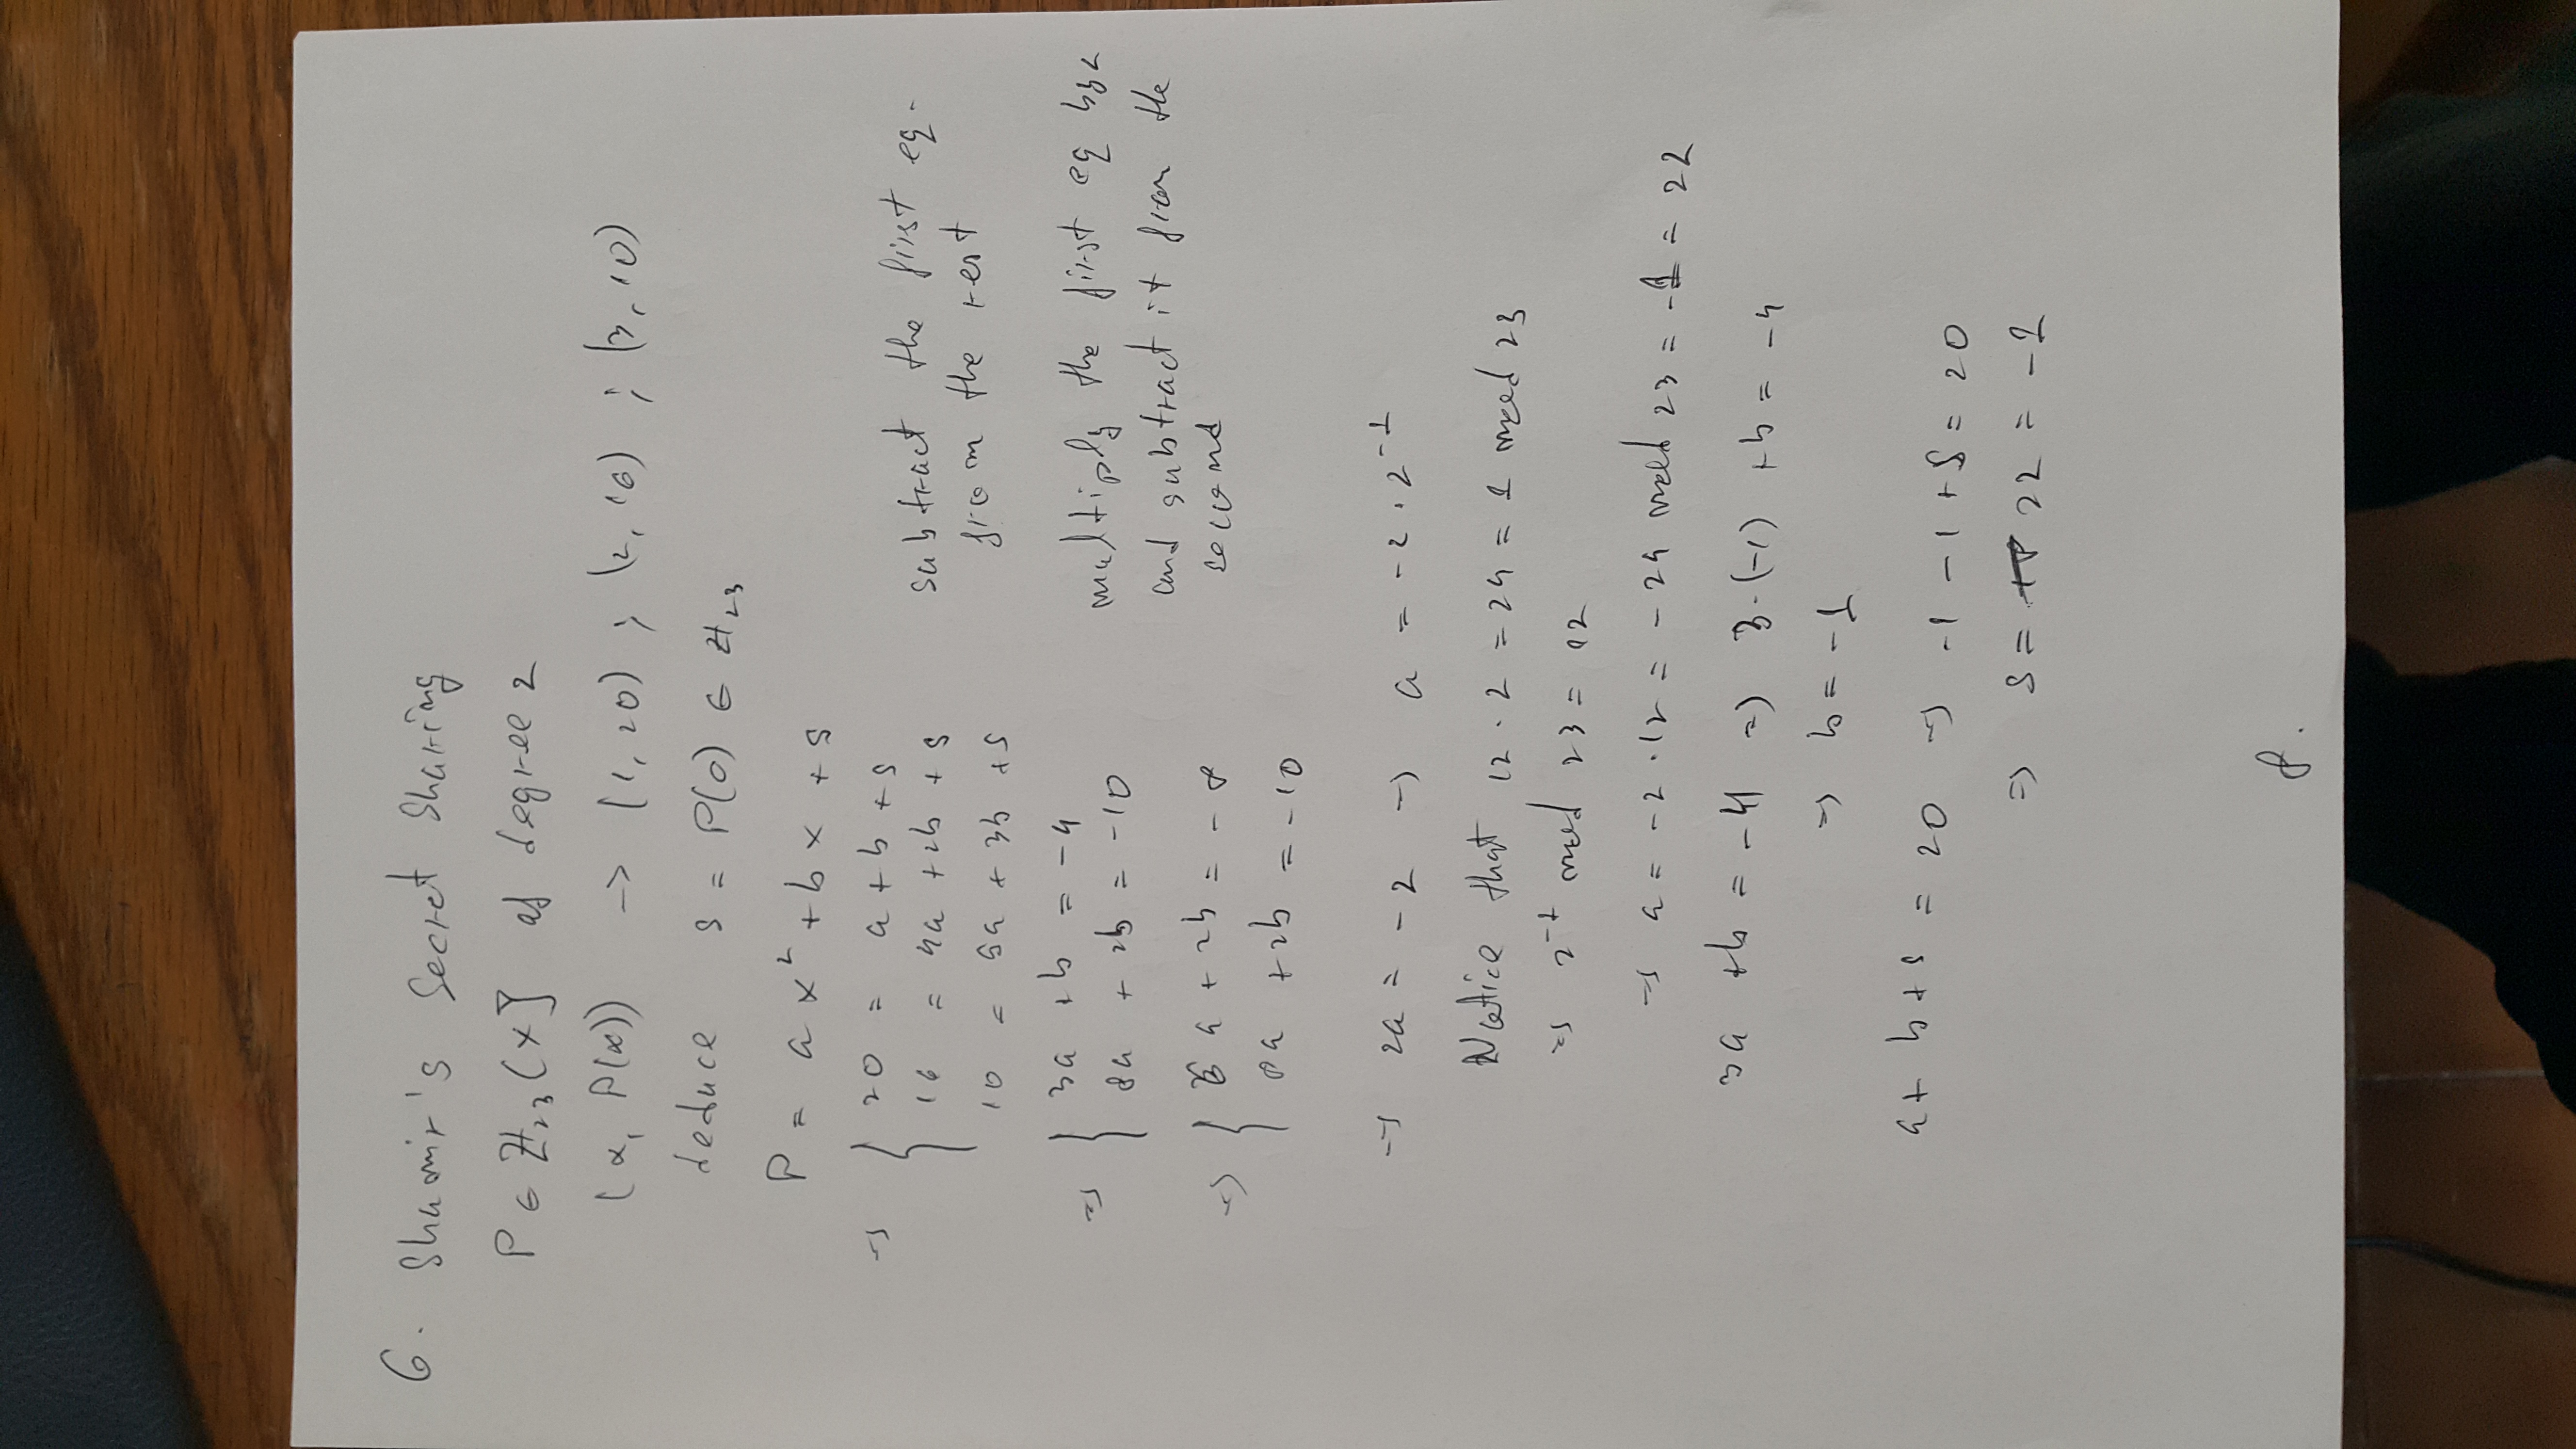 6. Shamir's Secret Sharing
P ∈ ℤ₂₃(x] of degree 2
(α, P(α)) -> (1, 20) ; (2, 16) ; (3, 10)
deduce s = P(0) ∈ ℤ₂₃
P = a x² + b x + s
=> { 20 = a + b + s
16 = 4a + 2b + s
10 = 9a + 3b + s
subtract the first eq.
from the rest
=> { 3a + b = -4
8a + 2b = -10
multiply the first eq by 2
and subtract it from the
second
=> { 6a + 2b = -8
8a + 2b = -10
=> 2a = -2 => a = -2 · 2⁻¹
Notice that 12 · 2 = 24 = 1 mod 23
=> 2⁻¹ mod 23 = 12
=> a = -2 · 12 = -24 mod 23 = -1 = 22
3a + b = -4 => 3 · (-1) + b = -4
=> b = -1
a + b + s = 20 => -1 - 1 + s = 20
=> s = 22 = -1
8.